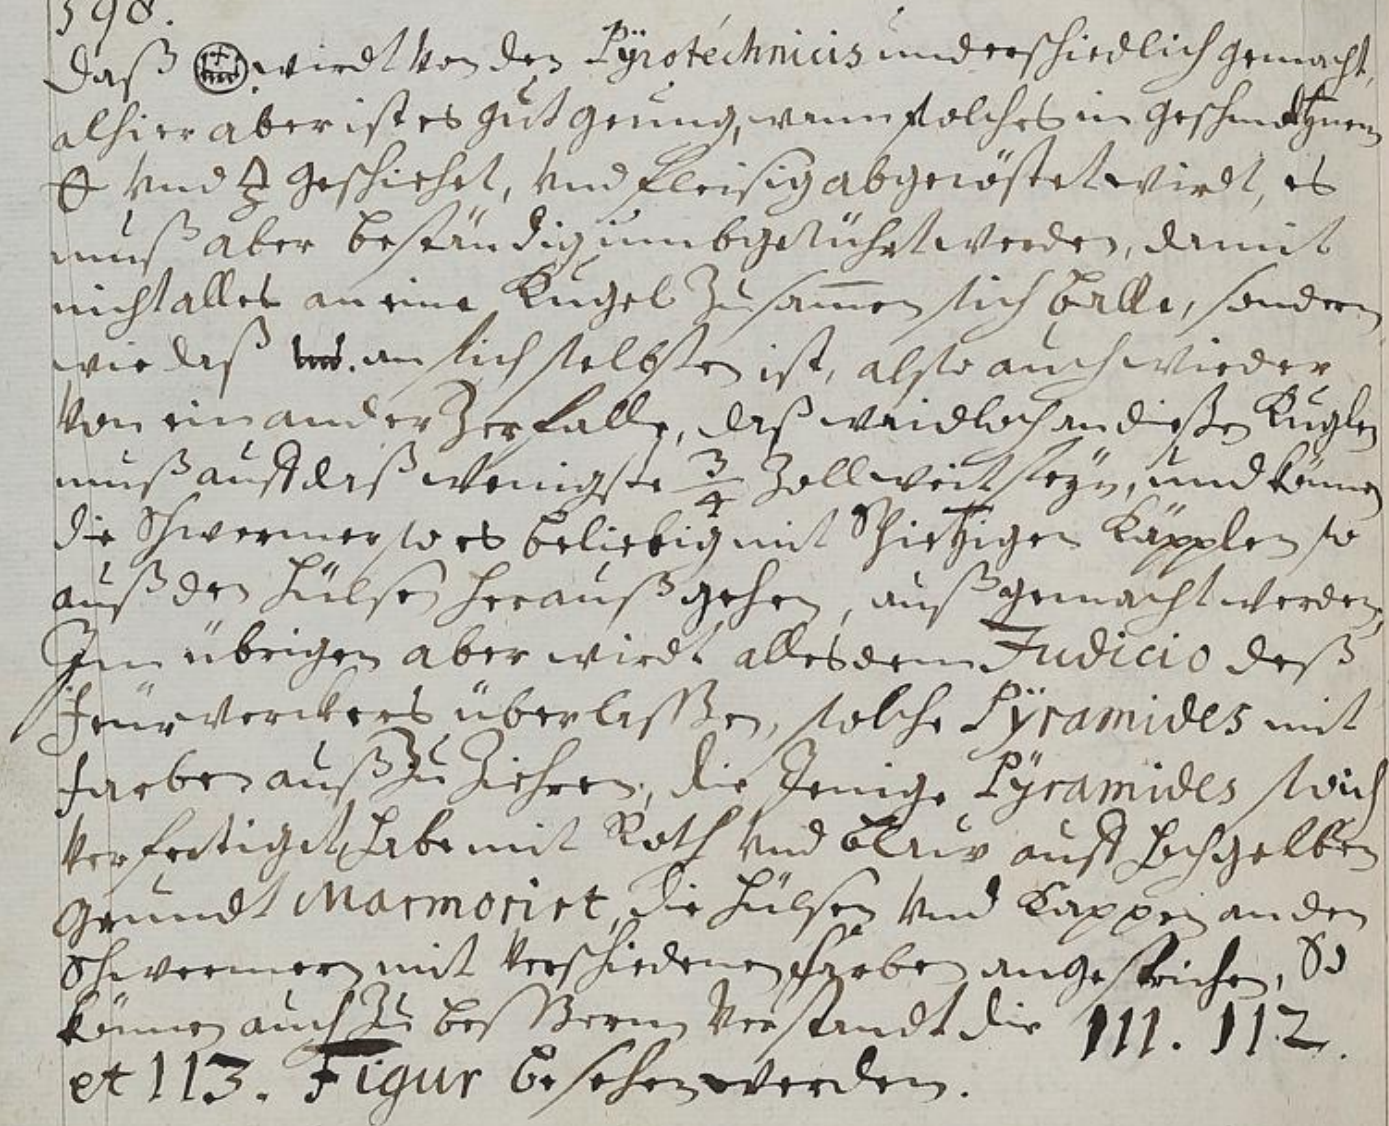 398.
Daß wirdt von den Pÿrotechnicis underschiedlich gemacht,
alhier aber ist es gut genung, wann solches in geschmoltznem
vnd geschiehet, vnd fleisig abgeröstet wirdt, es
muß aber beständig umbgerührt werden, damit
nicht alles an eine Kugel zusam̅en sich balle, sondern
wie daß an sich selbsten ist, also auch wieder
von einander zerfalle, daß waidloch an dießen Kuglen
muß auff daß wenigste 3/4 Zoll weit seÿn, und können
die Schwermer so es beliebig mit Spietzigen Käpplen so
auß den Hülsen herauß gehen, außgemacht werden,
Im übrigen aber wirdt alles dem Judicio deß
feürwerckers überlaßen, solche Pÿramides mit
farben auß zu Ziehren, die Jenige Pÿramides so ich
verfertiget habe mit Roth vnd blauw auff hochgelben
grundt Marmorirt, die Hülsen vnd Kappen an den
Schwermern mit verschiedenen farben angestrichen, So
können auch zu beßern verstandt die 111. 112.
et 113. Figur besehen werden.